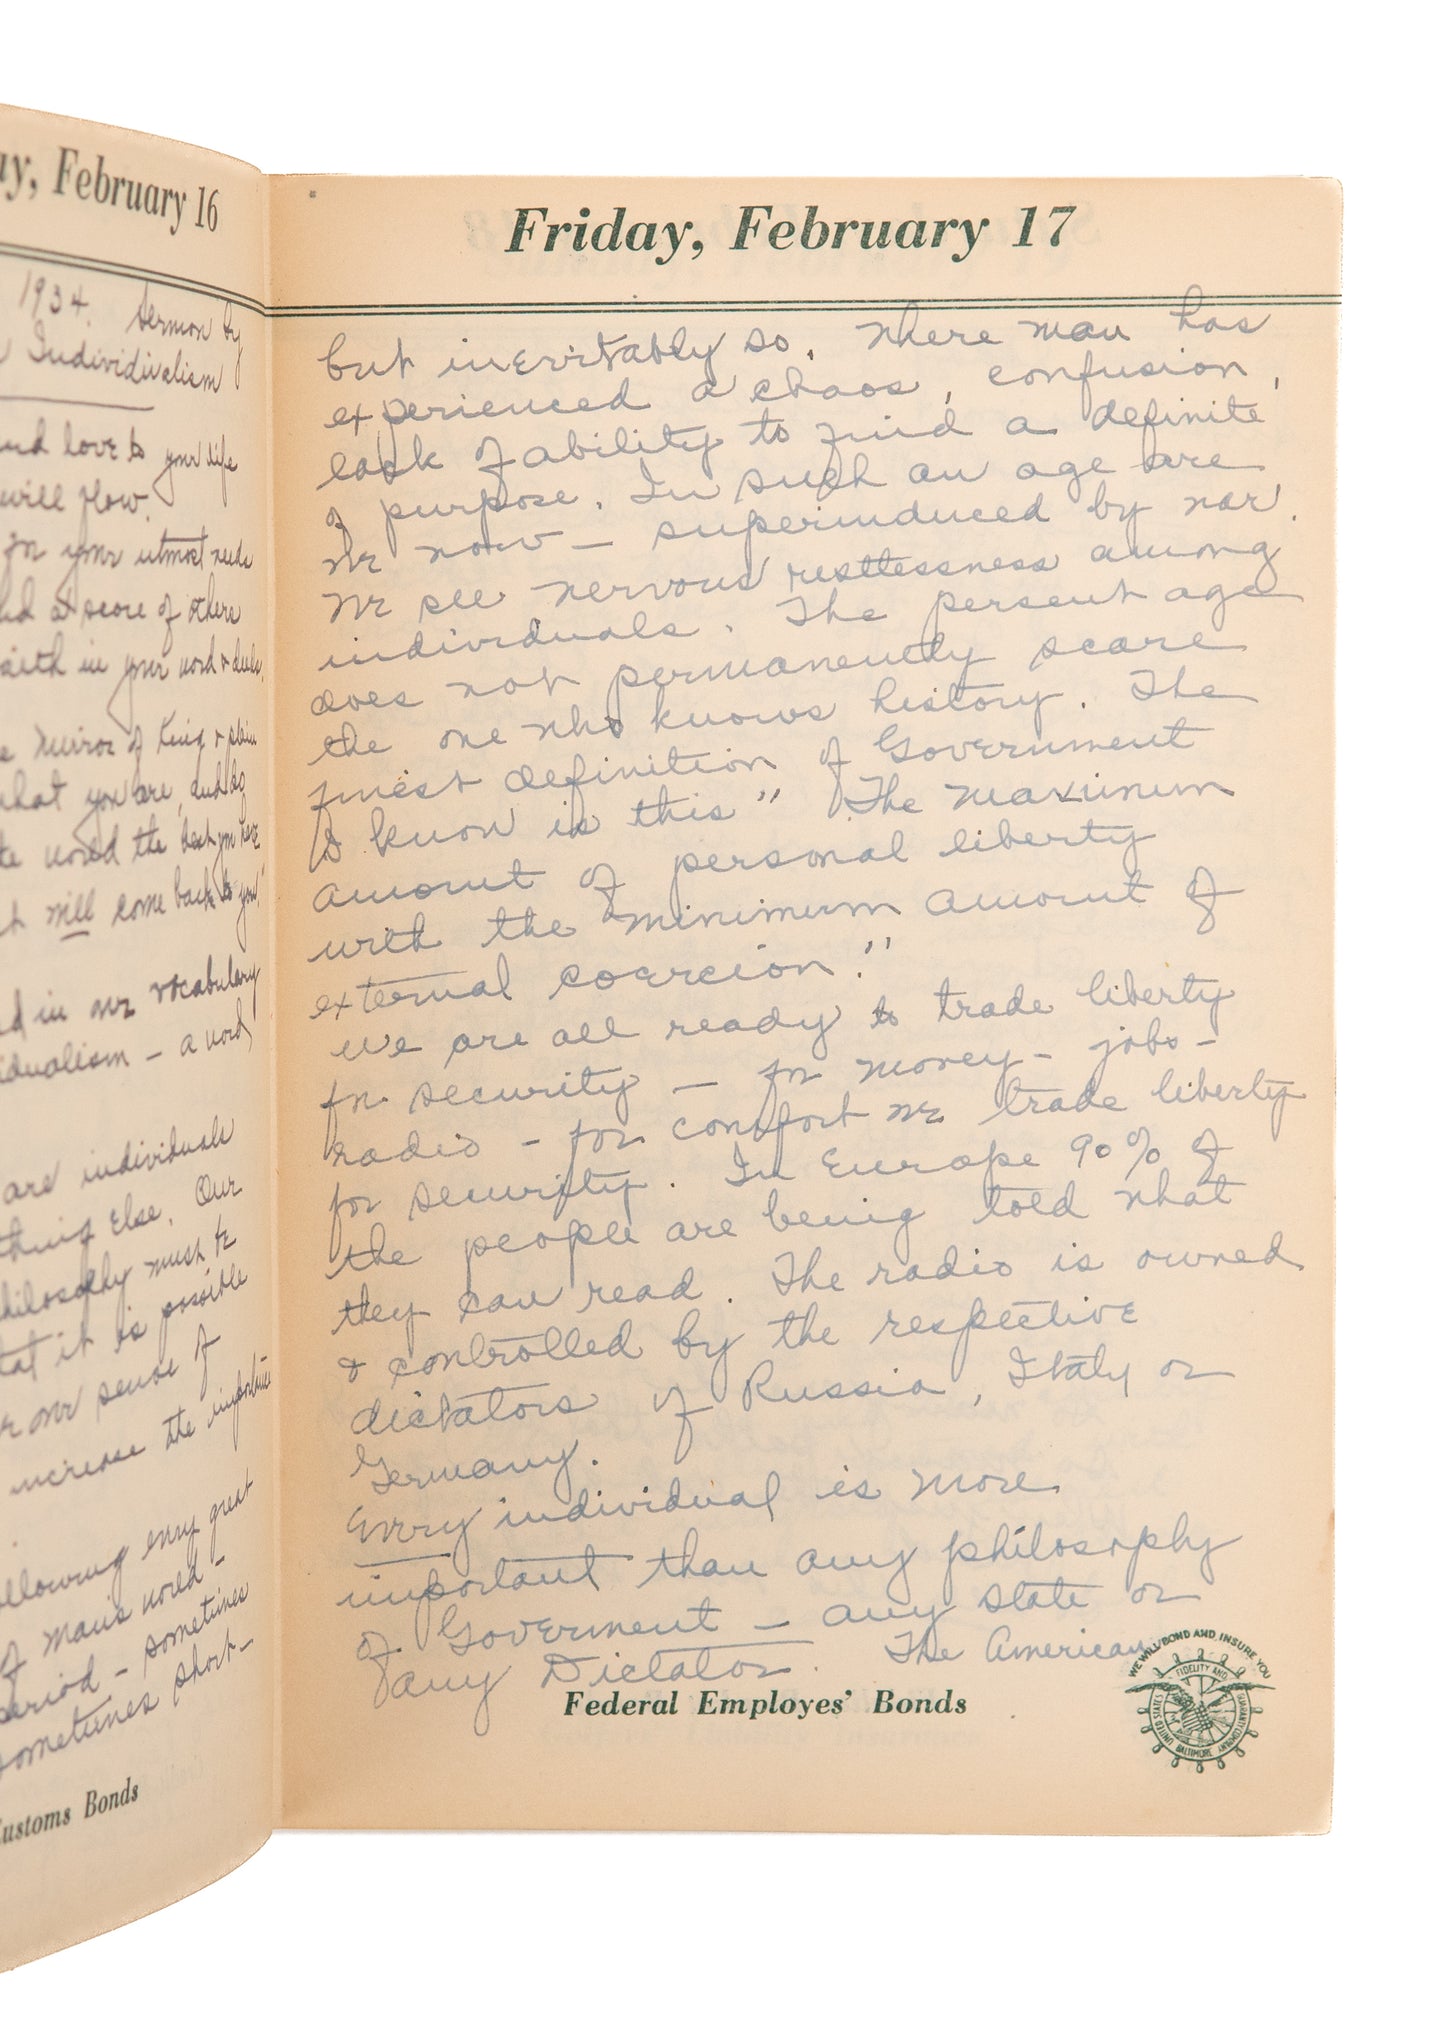 ay, February 16
1934. Sermon by
Individualism
and love to your life
will flow.
for your utmost needs
and a score of others
faith in your word & deeds.
Mirror of King & slave
what you are, and do
the world the best you have
it will come back to you"
in our vocabulary
idualism – a word
are individuals
thing Else. Our
philosophy must be
that it is possible
our sense of
increase the
following every great
of man's world –
period – sometimes
sometimes short –
Customs Bonds
Friday, February 17
but inevitably so. Where man has
experienced a chaos, confusion,
lack of ability to find a definite
of purpose. In such an age are
we now – superinduced by war.
We see nervous restlessness among
individuals. The persent age
does not permanently scare
the one who knows history. The
finest definition of Government
I know is this "The maximum
amount of personal liberty
with the minimum amount of
external coercion."
We are all ready to trade liberty
for security – for money – jobs –
radio – for comfort we trade liberty
for security. In Europe 90% of
the people are being told what
they can read. The radio is owned
& controlled by the respective
dictators of Russia, Italy or
Germany.
Every individual is more
important than any philosophy
of Goverment – any state or
any Dictator. The American
Federal Employes' Bonds
WE WILL BOND AND INSURE YOU
UNITED STATES FIDELITY AND GUARANTY COMPANY
BALTIMORE